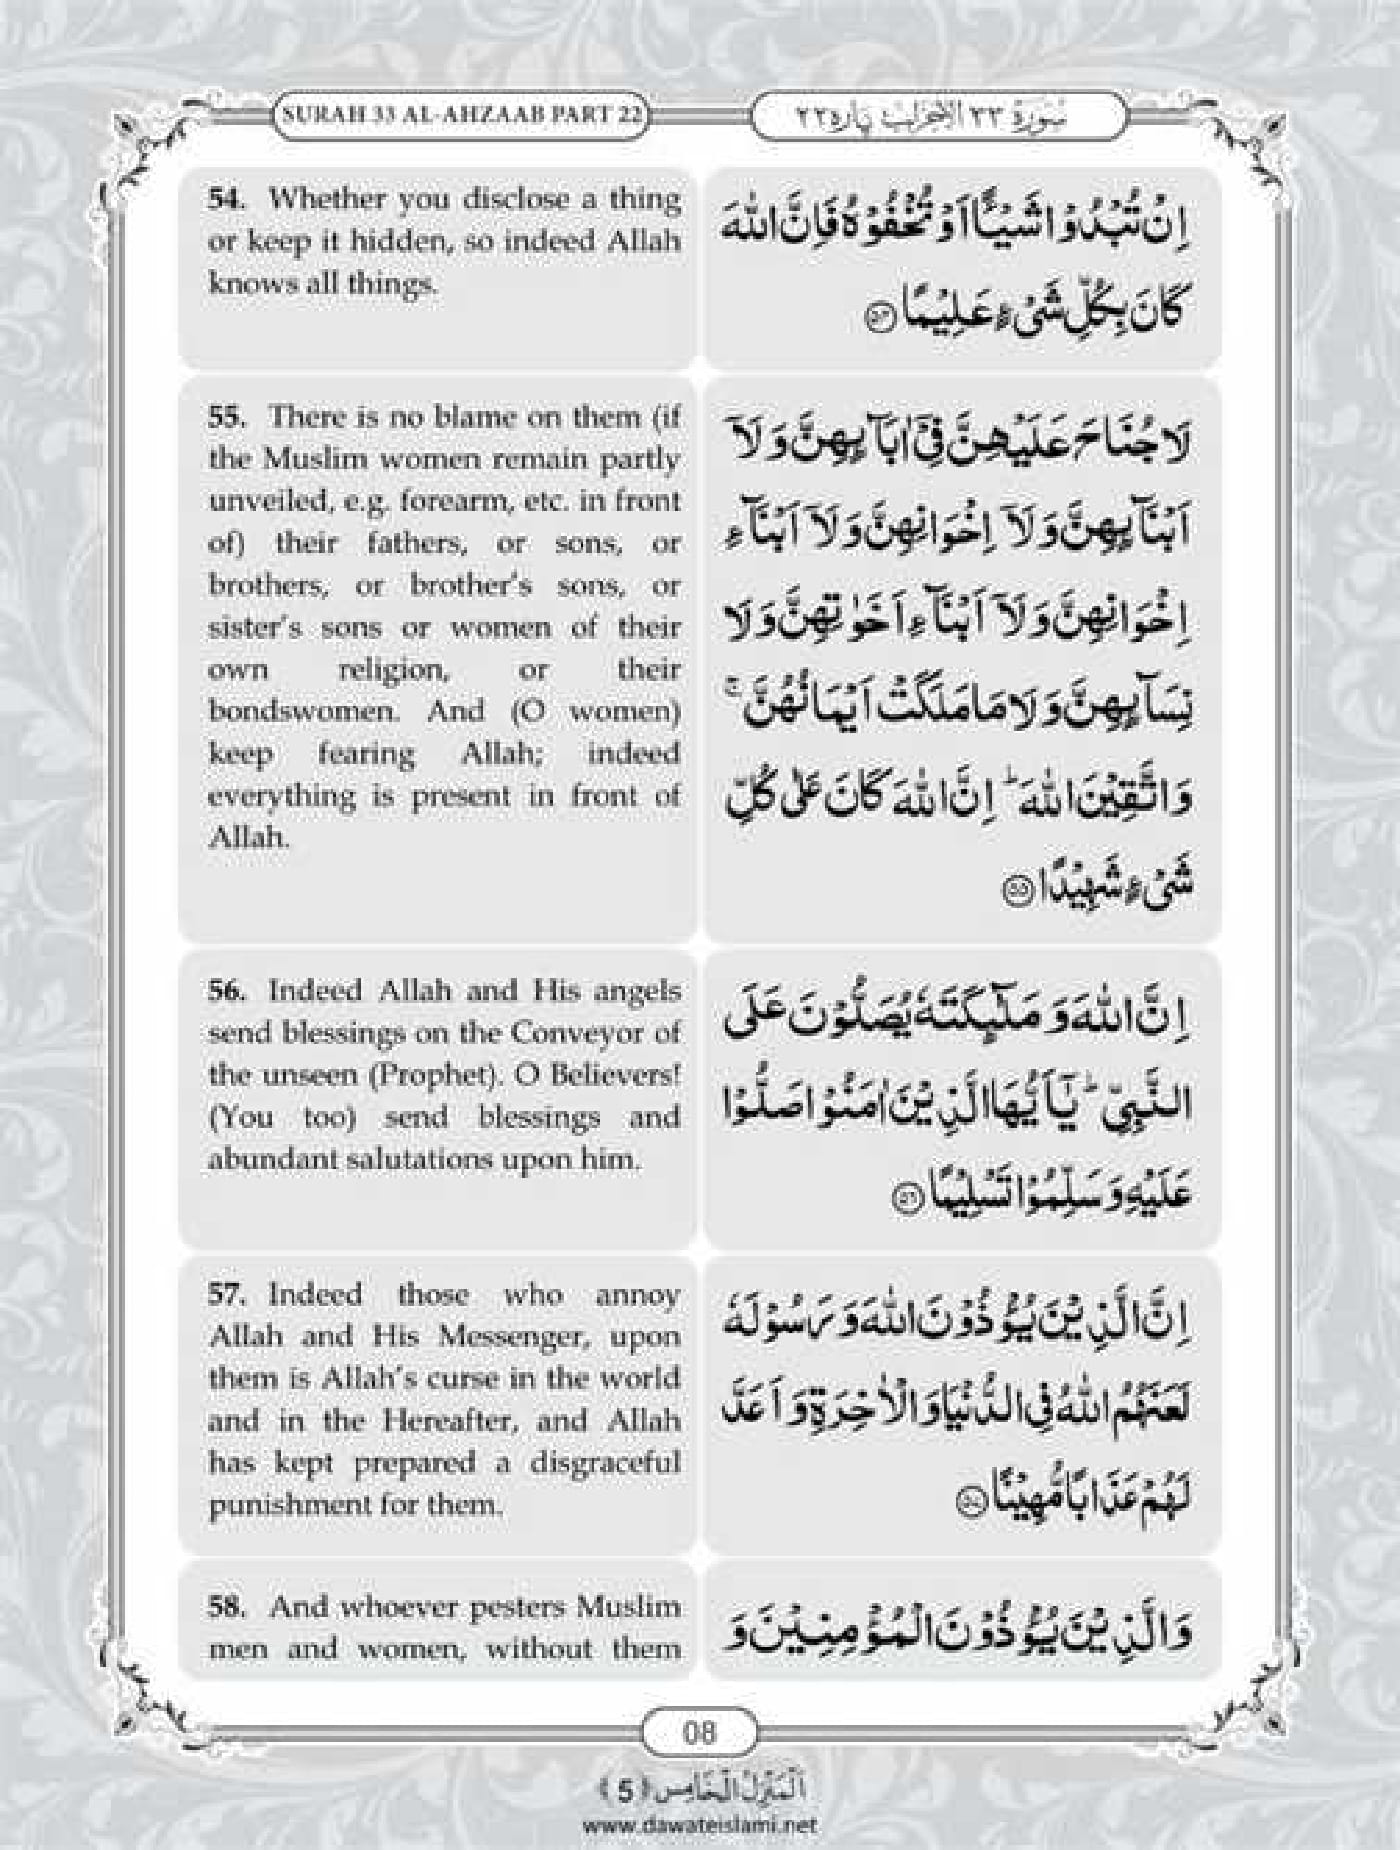 SURAH 33 AL-AHZAAB PART 22
سُوۡرَةُ ٣٣ الۡاَحۡزَاب پاره ٢٢
54. Whether you disclose a thing
or keep it hidden, so indeed Allah
knows all things.
اِنۡ تُبۡدُوۡا شَيۡـًٔا اَوۡ تُخۡفُوۡهُ فَاِنَّ اللّٰهَ
كَانَ بِكُلِّ شَیۡءٍ عَلِيۡمًا ﴿۵۴﴾
55. There is no blame on them (if
the Muslim women remain partly
unveiled, e.g. forearm, etc. in front
of) their fathers, or sons, or
brothers, or brother's sons, or
sister's sons or women of their
own religion, or their
bondswomen. And (O women)
keep fearing Allah; indeed
everything is present in front of
Allah.
لَا جُنَاحَ عَلَيۡهِنَّ فِیۡۤ اٰبَآئِهِنَّ وَ لَاۤ
اَبۡنَآئِهِنَّ وَ لَاۤ اِخۡوَانِهِنَّ وَ لَاۤ اَبۡنَآءِ
اِخۡوَانِهِنَّ وَ لَاۤ اَبۡنَآءِ اَخَوٰتِهِنَّ وَ لَا
نِسَآئِهِنَّ وَ لَا مَا مَلَكَتۡ اَيۡمَانُهُنَّ ۚ
وَ اتَّقِيۡنَ اللّٰهَ ؕ اِنَّ اللّٰهَ كَانَ عَلٰی كُلِّ
شَیۡءٍ شَهِيۡدًا ﴿۵۵﴾
56. Indeed Allah and His angels
send blessings on the Conveyor of
the unseen (Prophet). O Believers!
(You too) send blessings and
abundant salutations upon him.
اِنَّ اللّٰهَ وَ مَلٰٓئِكَتَهٗ يُصَلُّوۡنَ عَلَی
النَّبِیِّ ؕ يٰۤاَيُّهَا الَّذِيۡنَ اٰمَنُوۡا صَلُّوۡا
عَلَيۡهِ وَ سَلِّمُوۡا تَسۡلِيۡمًا ﴿۵۶﴾
57. Indeed those who annoy
Allah and His Messenger, upon
them is Allah's curse in the world
and in the Hereafter, and Allah
has kept prepared a disgraceful
punishment for them.
اِنَّ الَّذِيۡنَ يُؤۡذُوۡنَ اللّٰهَ وَ رَسُوۡلَهٗ
لَعَنَهُمُ اللّٰهُ فِی الدُّنۡيَا وَ الۡاٰخِرَةِ وَ اَعَدَّ
لَهُمۡ عَذَابًا مُّهِيۡنًا ﴿۵۷﴾
58. And whoever pesters Muslim
men and women, without them
وَ الَّذِيۡنَ يُؤۡذُوۡنَ الۡمُؤۡمِنِيۡنَ وَ
08
اَلۡمَنۡزِلُ الۡخَامِس ﴿5﴾
www.dawateislami.net